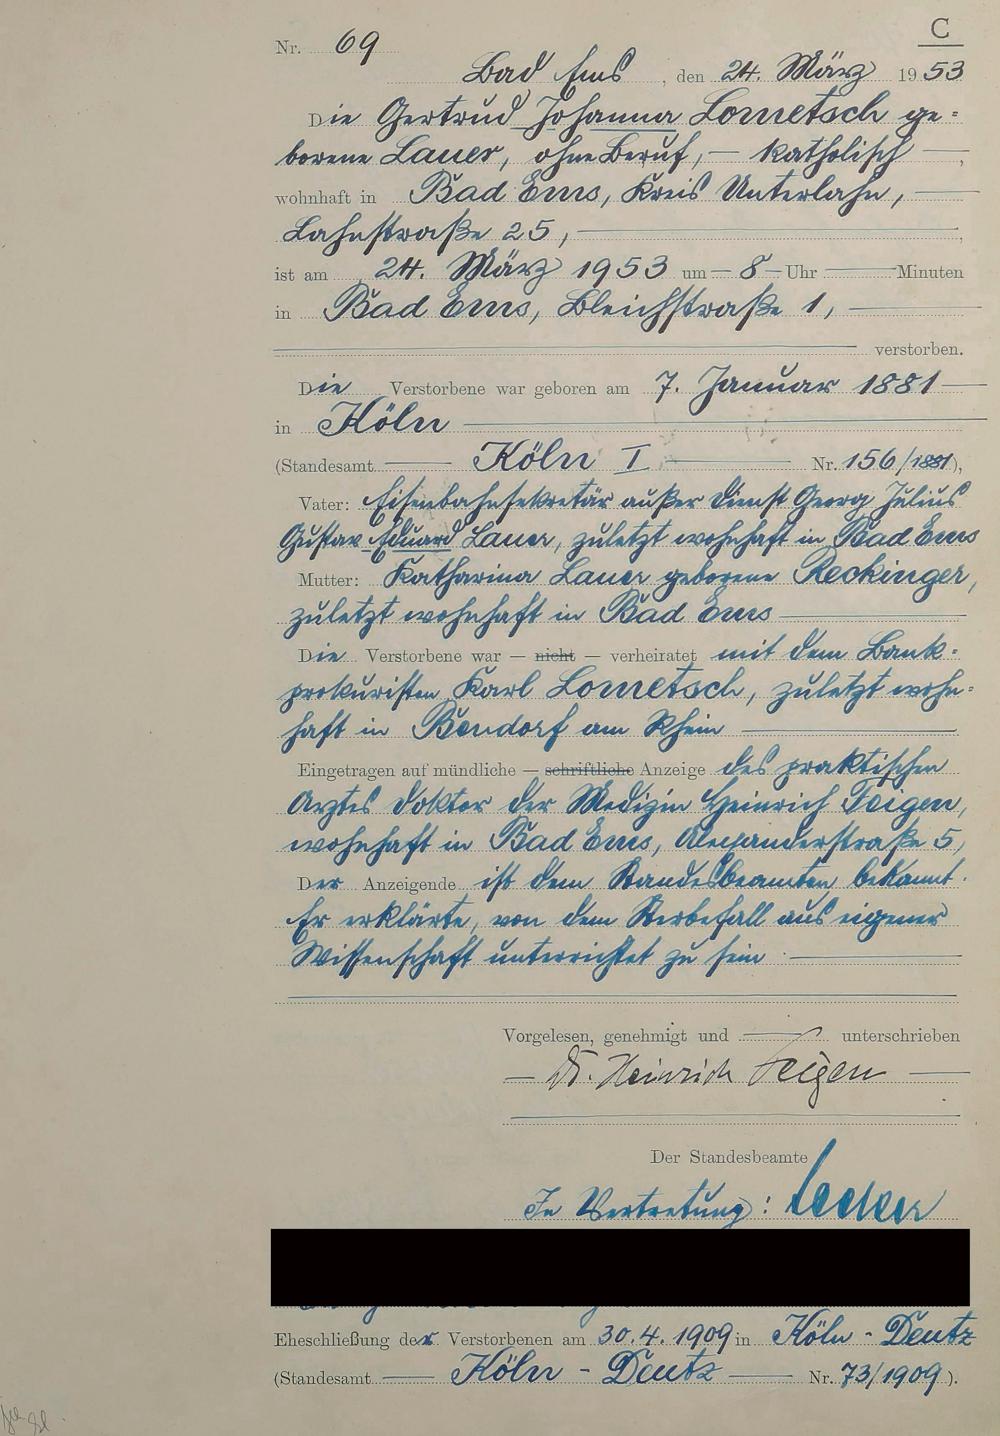 C
Nr. 69
Bad Ems, den 24. März 1953
Die Gertrud Johanna Lometsch ge-
borene Lauer, ohne Beruf, — katholisch —,
wohnhaft in Bad Ems, Kreis Unterlahn, —
Lahnstraße 25, —
ist am 24. März 1953 um — 8 — Uhr — Minuten
in Bad Ems, Bleichstraße 1, —
verstorben.
Die Verstorbene war geboren am 7. Januar 1881 —
in Köln —
(Standesamt — Köln I — Nr. 156/1881),
Vater: Eisenbahnsekretär außer Dienst Georg Julius
Gustav Eduard Lauer, zuletzt wohnhaft in Bad Ems
Mutter: Katharina Lauer geborene Reckinger,
zuletzt wohnhaft in Bad Ems —
Die Verstorbene war — nicht — verheiratet mit dem Bank-
prokuristen Karl Lometsch, zuletzt wohn-
haft in Bendorf am Rhein —
Eingetragen auf mündliche — schriftliche Anzeige des praktischen
Arztes Doktor der Medizin Heinrich Feigen,
wohnhaft in Bad Ems, Alexanderstraße 5,
Der Anzeigende ist dem Standesbeamten bekannt.
Er erklärte, von dem Sterbefall aus eigener
Wissenschaft unterrichtet zu sein —
Vorgelesen, genehmigt und — unterschrieben
— Dr. Heinrich Feigen —
Der Standesbeamte
In Vertretung:
Eheschließung der Verstorbenen am 30.4.1909 in Köln-Deutz
(Standesamt — Köln-Deutz — Nr. 73/1909).